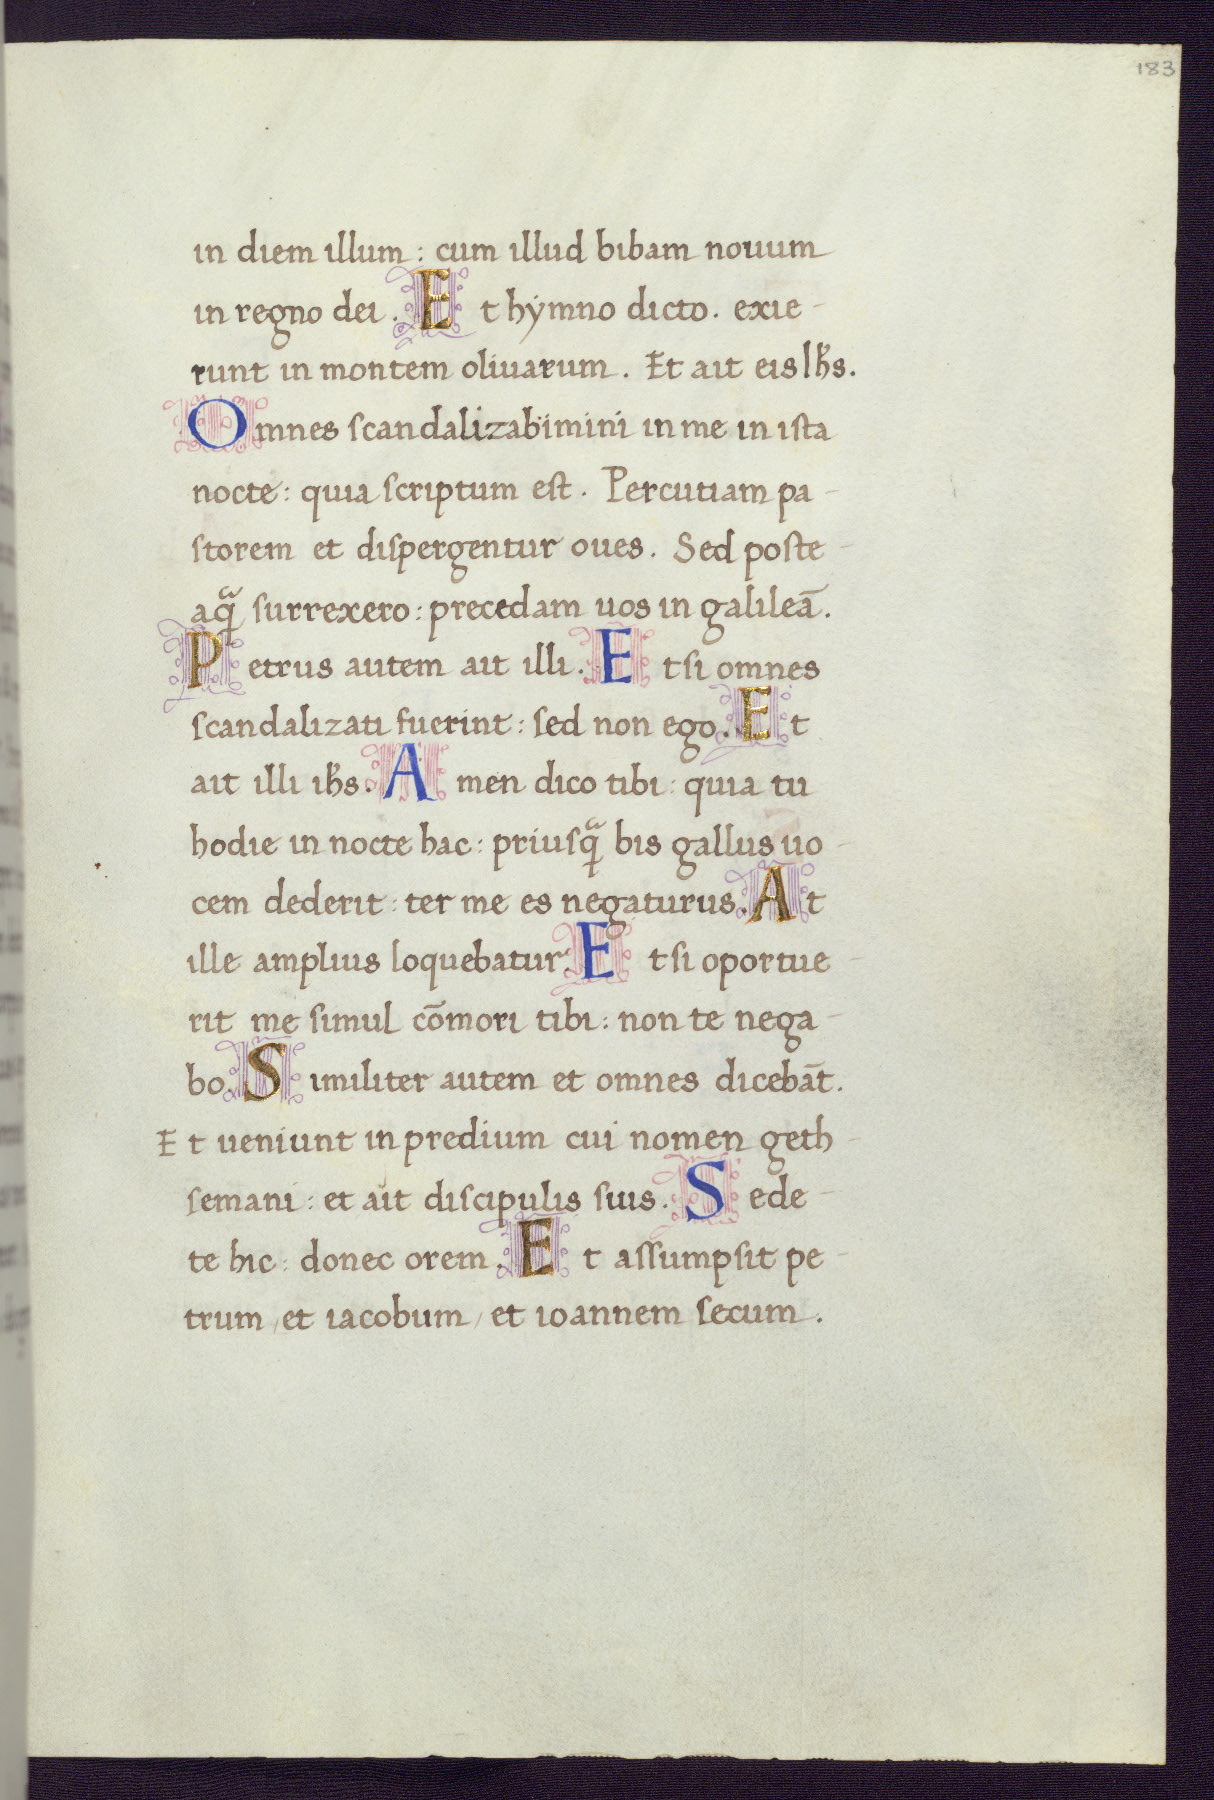 183
in diem illum : cum illud bibam nouum
in regno dei . Et hýmno dicto . exie-
runt in montem oliuarum . Et ait eis Ihs̄.
Omnes scandalizabimini in me in ista
nocte : quia scriptum est . Percutiam pa-
storem et dispergentur oues . Sed poste-
aqᷓ surrexero : precedam uos in galileā .
Petrus autem ait illi . Et si omnes
scandalizati fuerint : sed non ego . Et
ait illi ihs̄ . Amen dico tibi : quia tu
hodie in nocte hac : priusqᷓ bis gallus uo-
cem dederit : ter me es negaturus . At
ille amplius loquebatur . Et si oportue-
rit me simul cōmori tibi : non te nega-
bo . Similiter autem et omnes dicebāt .
Et ueniunt in predium cui nomen geth-
semani : et ait discipulis suis . Sede-
te hic : donec orem . Et assumpsit pe-
trum , et iacobum , et ioannem secum .